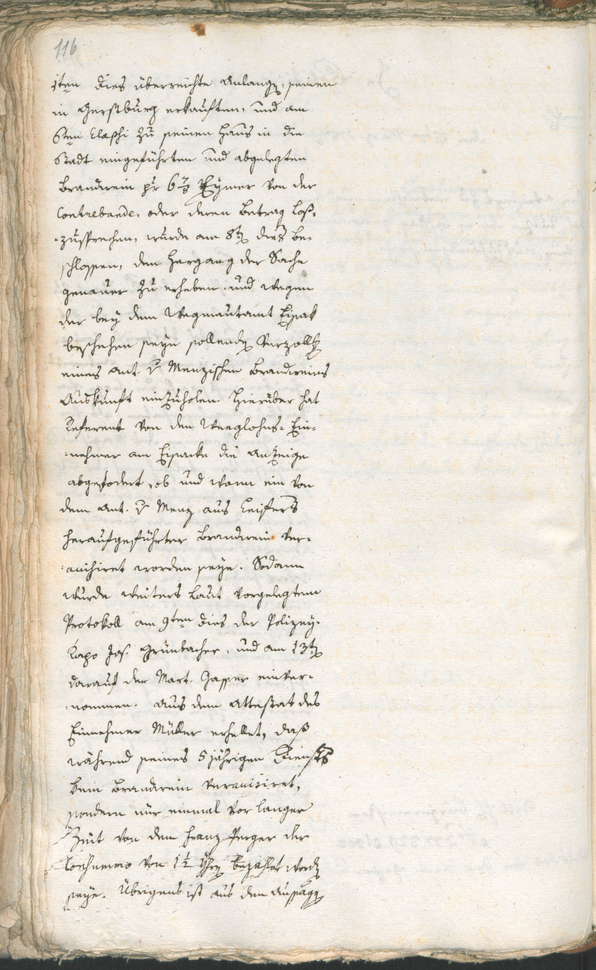 116
ten dies überreichte Anlangen, seinen
in Gerstburg erkauften, und am
6ten Elasti zu seinen Haus in die
Stadt eingeführten und abgelegten
Brandwein pr 6 2/3 Eymer von der
Contrebande, oder deren Betrag loß-
zusprechen, wurde am 8t dies be-
schlossen, den Hergang der Sache
genauer zu erheben und wegen
der bey dem Wegmautamt Eisak
beschehen seyn sollenden Verzollung
eines Ant. v Menzischen Brandweins
Auskunft einzuholen. Hierüber hat
Referent von dem Weeglohns-Ein-
nehmer am Eisacke die Anzeige
abgefodert, ob und wann ein von
dem Ant. v Menz aus Leifers
heraufgeführter Brandwein ver-
acisiret worden seye. Sodann
wurde weiters laut vorgelegtem
Protokoll am 9ten dies der Polizey-
Kapo Jos. Grünbacher, und am 13t
darauf der Mart. Gasser einver-
nommen. Aus dem Attestat des
Einnehmer Müller erhellet, daß
während seines 5 jährigen Dienstes
kein Brandwein veracisiret,
sondern nur einmal vor langer
Zeit von dem Franz Perger der
von 1 1/2 Yhrn bezahlet worden
seye. Übrigens ist aus den Aussagen